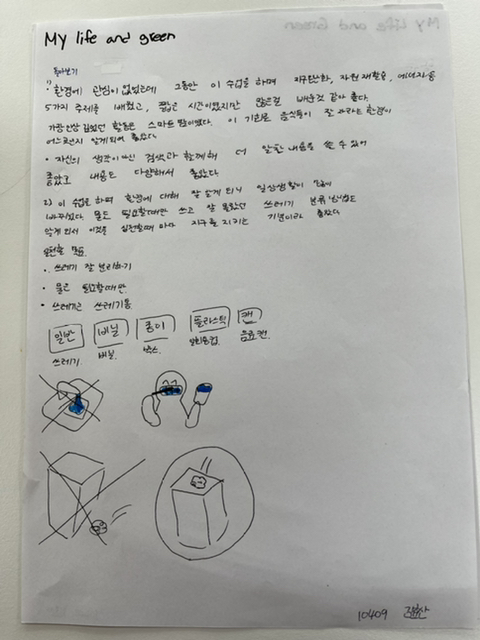 My life and green
돌아보기
1) 환경에 관심이 없었는데 그동안 이 수업을 하며 지구온난화, 자원 재활용, 에너지 등
5가지 주제를 배웠고, 짧은 시간이었지만 많은걸 배운것 같아 좋다.
가장 인상 깊었던 활동은 스마트 팜이였다. 이 기회로 음식들이 잘 자라는 환경이
어느곳인지 알게되어 좋았다.
• 자신의 생각이 아닌 검색과 함께해 더 알찬 내용을 쓸 수 있어
좋았고 내용도 다양해서 좋았다.
2) 이 수업을 하며 환경에 대해 잘 알게 되니 일상생활이
바뀌었다. 물도 필요할때만 쓰고 잘 몰랐던 쓰레기 분류 방법도
알게 되서 이것을 실천할때 마다 지구를 지키는 기분이라 좋았다
• 쓰레기 잘 분리하기
• 물은 필요할때만
• 쓰레기은 쓰레기통
일반 비닐 종이 플라스틱 캔
쓰레기 비닐 박스 일회용컵 음료 캔
10409